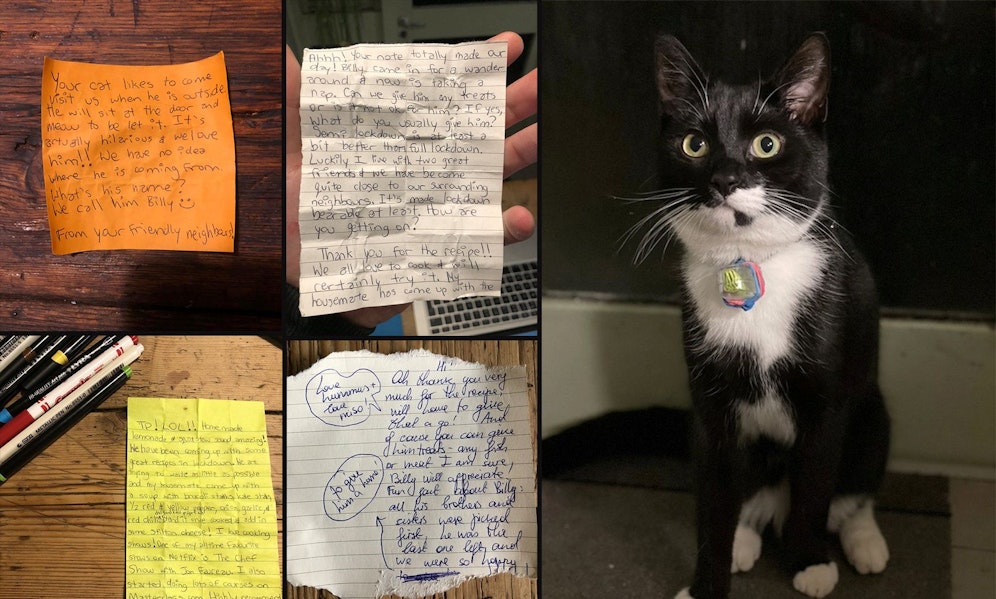 Your cat likes to come
visit us when he is outside.
He will sit at the door and
meow to be let it. It's
actually hilarious & we love
him!! We have no idea
where he is coming from.
What's his name?
We call him Billy
From your friendly neighbours!
Ahhh! Your note totally made our
day! Billy came in for a wander
around & now is taking a
nap. Can we give him any treats
or is it not ok for him? If yes,
what do you usually give him?
Semi lockdown is at least a
bit better than full lockdown.
Luckily I live with two great
friends & we have become
quite close to our surrounding
neighbours. It's made lockdown
bearable at least. How are
you getting on?
Thank you for the recipe!!
We all love to cook & will
certainly try it. My
housemate has come up with the
JP! LOL!! Home made
lemonade & sound amazing!
We have been coming up with some
great recipes in lockdown. We are
trying to waste as little as possible
and my housemate came up with
a soup with broccoli stalks, kale stalks,
1/2 red & yellow pepper, onion, garlic, &
red chilli and it worked & add in
some stilton cheese! I love cooking
shows! One of my all time favourite
shows on Netflix is The Chef
Show with Jon Favreau. I also
started doing lots of courses on
Masterclass.com. Highly recommend
Love
hummus +
love
miso
Hi!
Ah thank you very
much for the recipe!
will have to give
that a go! And
of cause you can give
him treats - any fish
or meet I am sure,
Billy will appreciate.
Fun fact about Billy:
all his brothers and
sisters were picked
first, he was the
last one left and
we were so happy
to give
him a home